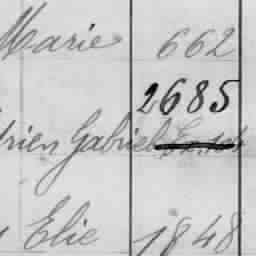 Marie 662
2685
drien Gabriel
Elie 1848